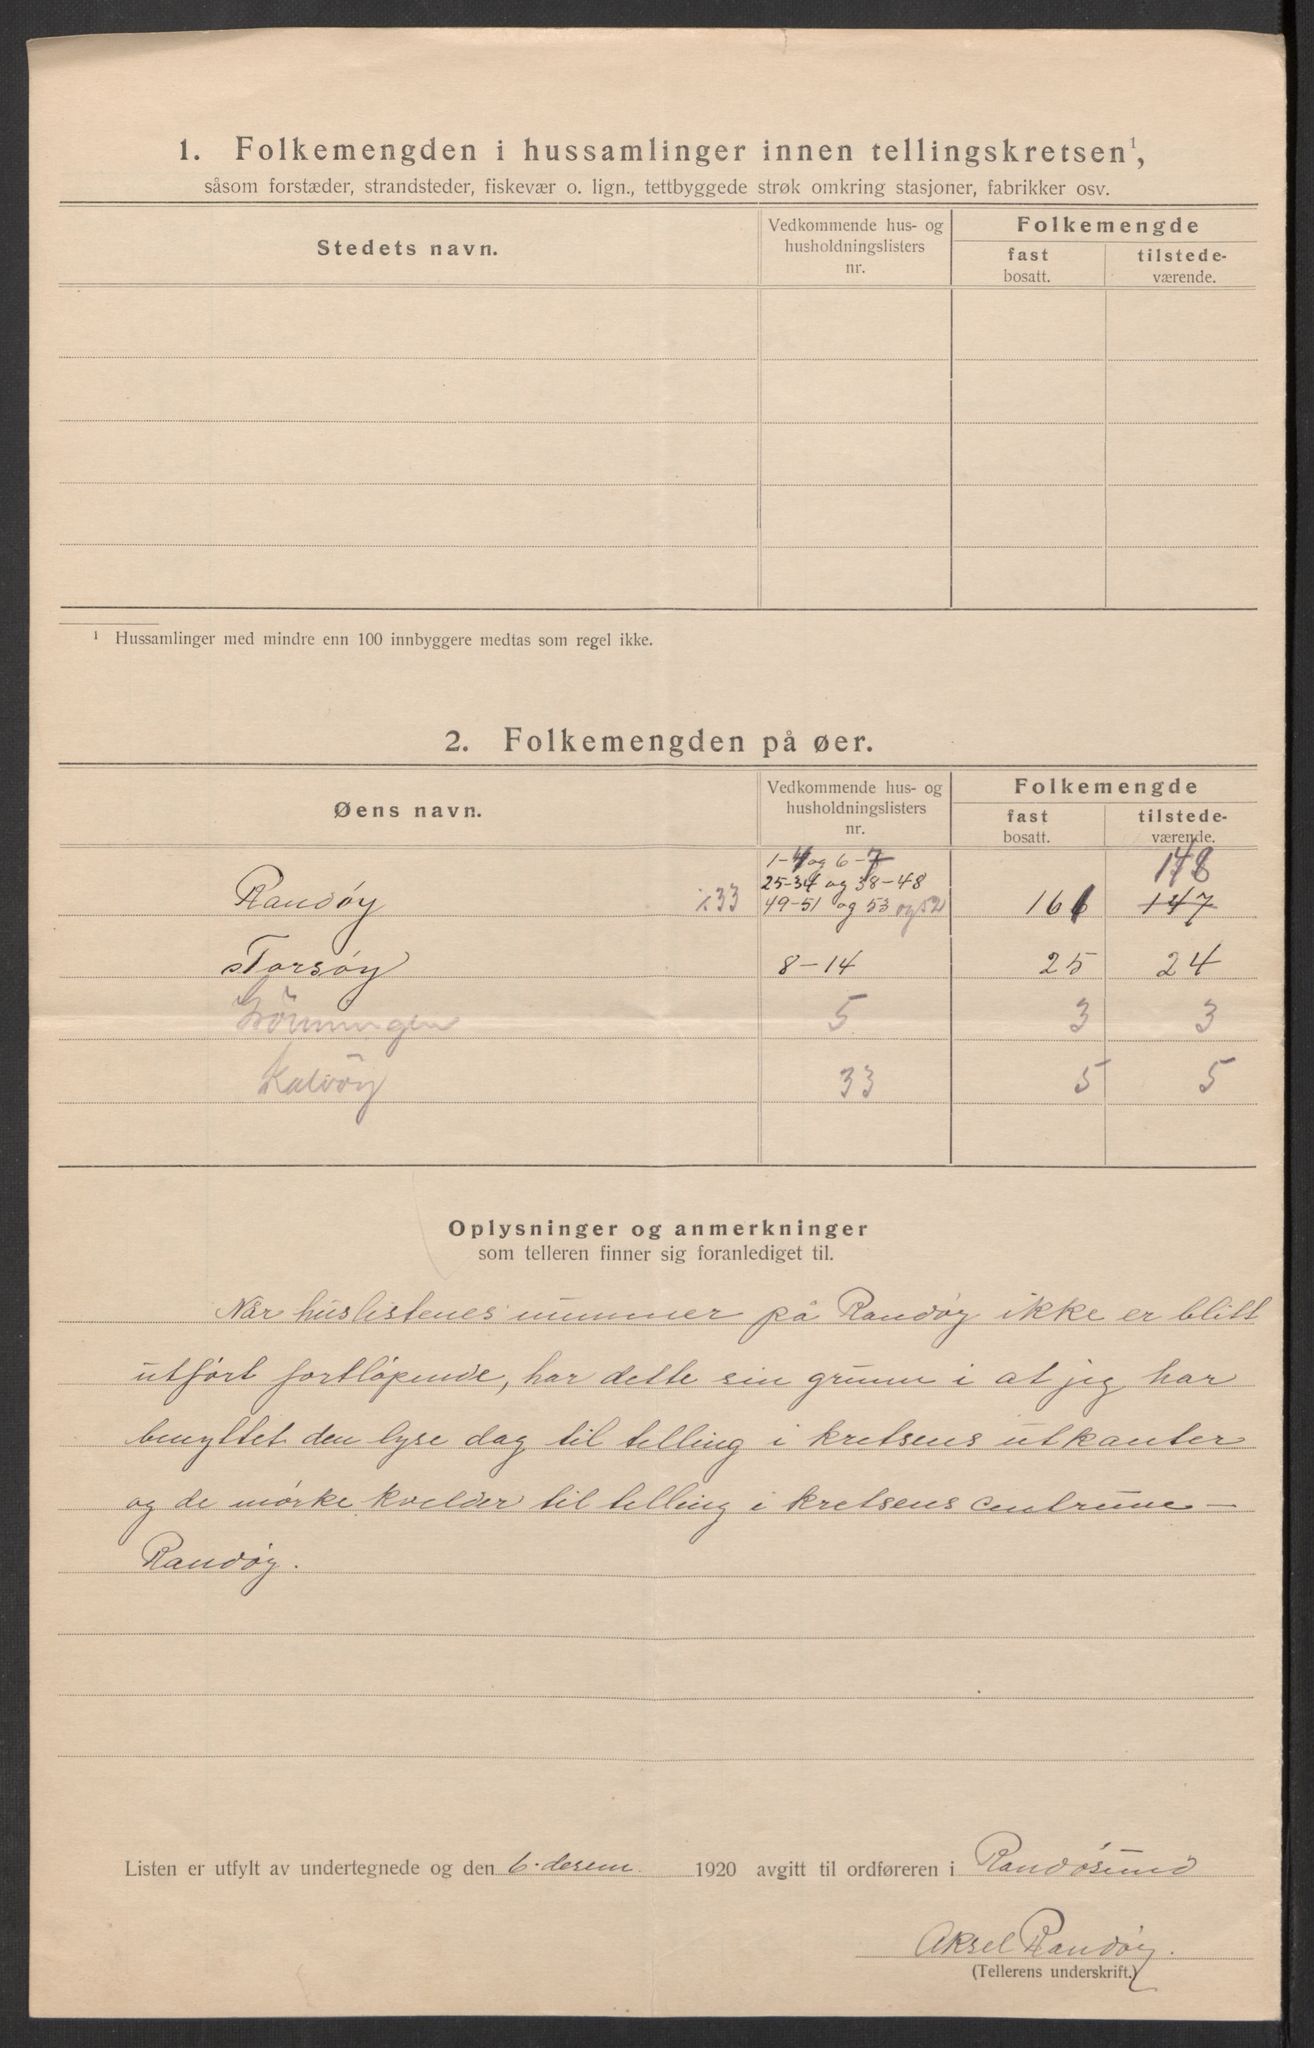 1. Folkemengden i hussamlinger innen tellingskretsen¹,
såsom forstæder, strandsteder, fiskevær o. lign., tettbyggede strøk omkring stasjoner, fabrikker osv.
Stedets navn.
Vedkommende hus- og
husholdningslisters
nr.
Folkemengde
fast
bosatt.
tilstede-
værende.
¹ Hussamlinger med mindre enn 100 innbyggere medtas som regel ikke.
2. Folkemengden på øer.
Øens navn.
Vedkommende hus- og
husholdningslisters
nr.
Folkemengde
fast
bosatt.
tilstede-
værende.
1-4 og 6-7 148
25-34 og 38-48
Randøy ٪33 49-51 og 53 og 52 161 147
Torsøy 8-14 25 24
Grönningen 5 3 3
Kalvöy 33 5 5
Oplysninger og anmerkninger
som telleren finner sig foranlediget til.
Når huslistenes nummer på Randøy ikke er blitt
utført fortløpende, har dette sin grunn i at jeg har
benyttet den lyse dag til telling i kretsens utkanter
og de mørke kvelder til telling i kretsens centrum –
Randøy.
Listen er utfylt av undertegnede og den 6. desem 1920 avgitt til ordføreren i Randøsund
Aksel Randøy.
(Tellerens underskrift.)